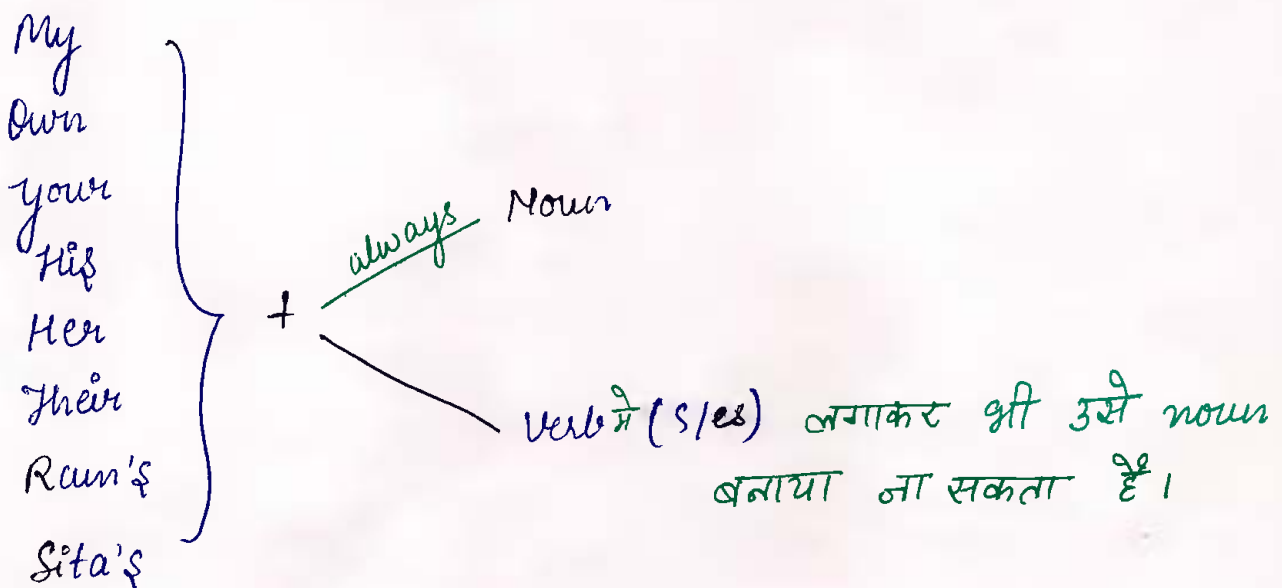 My
Own
your
His
Her
Their
Ram's
Sita's
+
always Noun
verb मे (s/es) लगाकर भी उसे noun
बनाया जा सकता है।